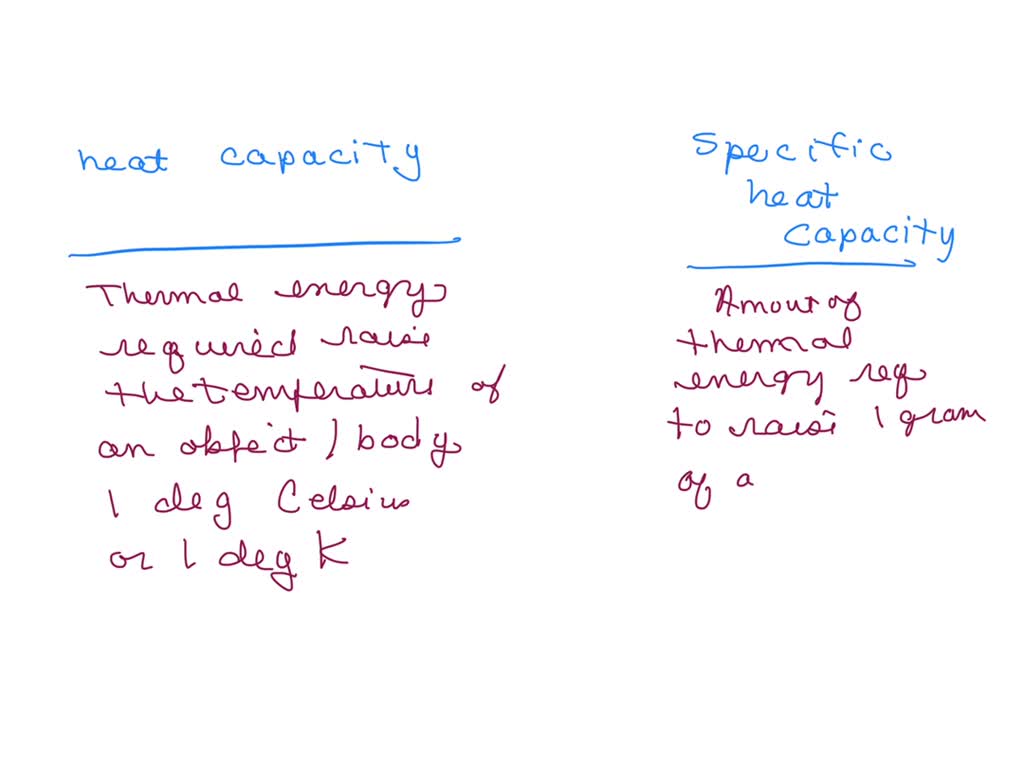 heat capacity
Thermal energy
required raise
the temperature of
an object / body
1 deg Celsius
or 1 deg K
Specific
heat
capacity
Amout of
thermal
energy req
to raise 1 gram
of a